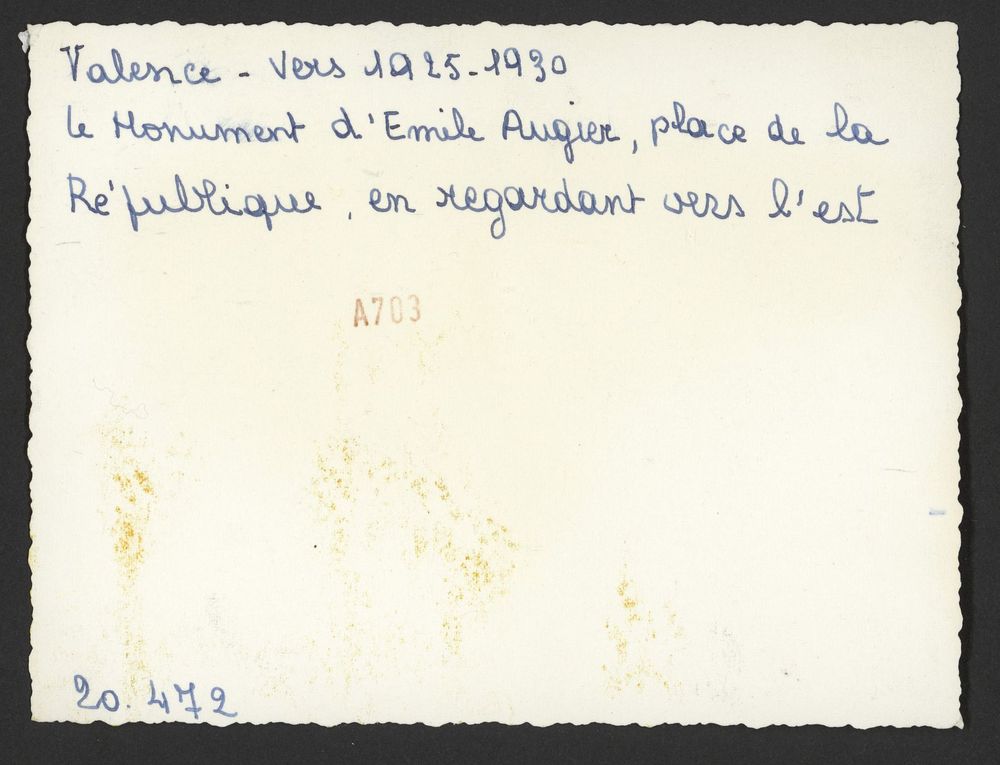 Valence - vers 1925-1930
le Monument d'Emile Augier, place de la
République, en regardant vers l'est
A703
20.472